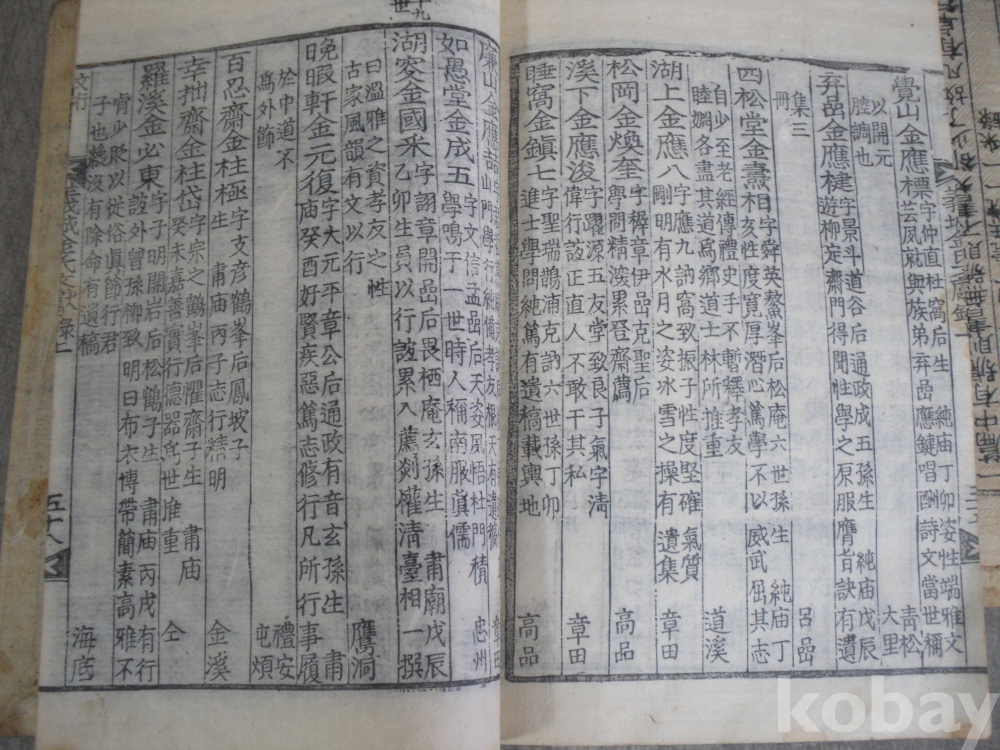 覺山金應標字仲直杜窩后生 純庙丁卯姿性端雅文
芸夙就與族弟弃嵒應鍵唱酬詩文當世稱
以開元
腔調也
青松
大里
弃嵒金應楗字景斗道谷后通政成五孫生 純庙戊辰
遊柳定齋門得聞性學之原服膺旨訣有遺
集三
冊
呂嵒
四松堂金燾相字舜英鰲峯后松庵六世孫生 純庙丁
亥性度寬厚潛心篤學不以威武屈其志
自少至老經傳禮史手不暫釋孝友
睦婣各盡其道爲鄉道士林所推重
道溪
湖上金應八字應九訥窩致振子性度堅確氣質
剛明有水月之姿冰雪之操有遺集
章田
松岡金煥奎字穉章伊嵒克聖后
學問精深累登齋薦
高品
溪下金應浚字曜源五友堂致良子氣宇淸
偉行誼正直人不敢干其私
章田
睡窩金鎭七字聖瑞鵲浦克訥六世孫丁卯
進士學問純篤有遺稿載輿地
高品
廉山金應喆
忠州
如愚堂金成五字文信孟嵒后天姿夙悟杜門積
學鳴于一世時人稱南服眞儒
湖叜金國采字詡章開嵒后畏栖庵玄孫生 肅廟戊辰
乙卯生員以行誼累入薦剡權淸臺相一撰
曰溫雅之資孝友之性
古家風韻有文以行
鷹洞
晩暇軒金元復字大元太平章公后通政有音玄孫生 肅
庙癸酉好賢疾惡篤志修行凡所行事履
於中道不
爲外飾
禮安
屯煩
百忍齋金柱極字支彦鶴峯后鳳坡子
生 肅庙丙子志行精明
金溪
幸拙齋金柱岱字宗之鶴峯后懼齋子生 肅庙
癸未嘉善實行德器爲世推重
仝
羅溪金必東字子明開岩后松鶴子生 肅庙丙戌有行
誼外曾孫柳致明曰布衣博帶簡素高雅不
肯少貶以從俗眞篩行君
子也幾沒有除命有遺稿
海底
文行
五十八
kobay